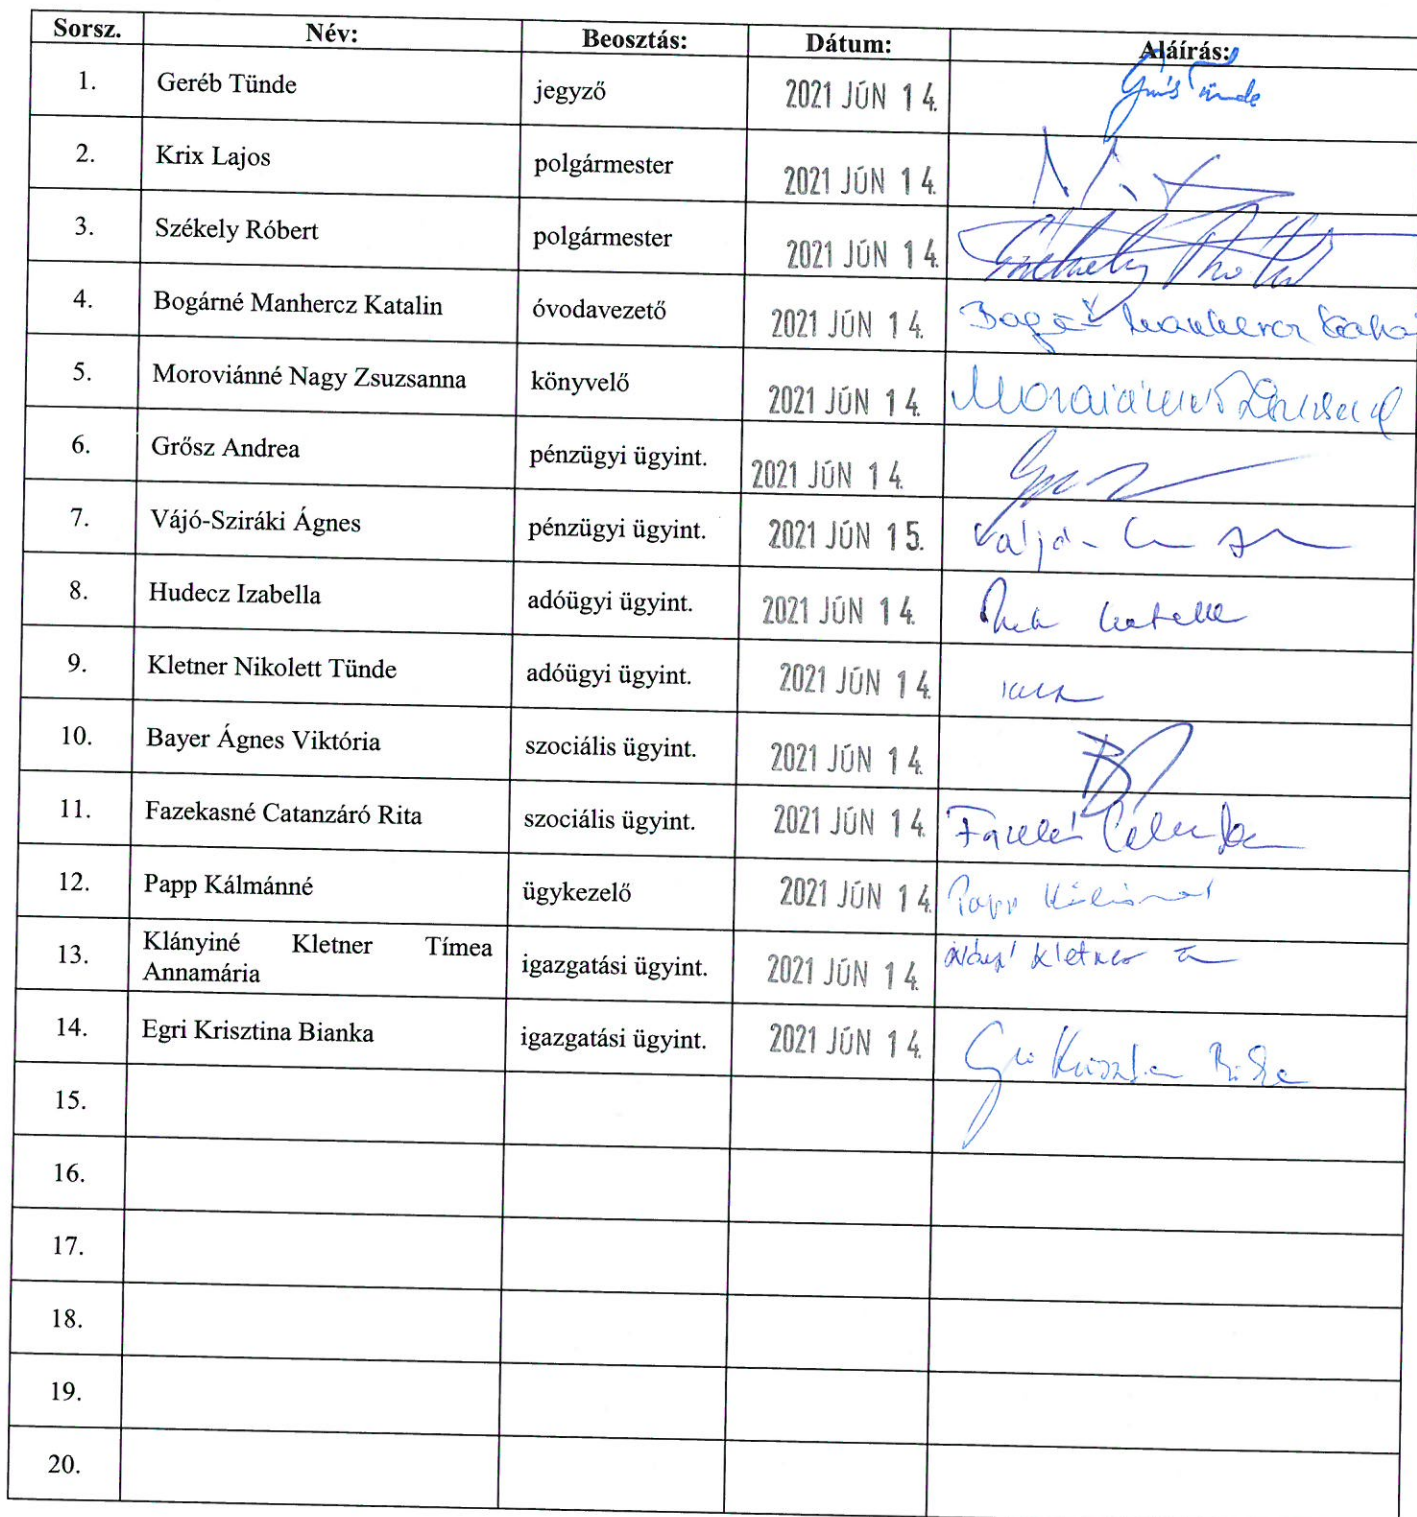 Sorsz. Név: Beosztás: Dátum: Aláírás:
1. Geréb Tünde jegyző 2021 JÚN 14. Tünde
2. Krix Lajos polgármester 2021 JÚN 14.
3. Székely Róbert polgármester 2021 JÚN 14. Székely Róbert
4. Bogárné Manhercz Katalin óvodavezető 2021 JÚN 14.
5. Moroviánné Nagy Zsuzsanna könyvelő 2021 JÚN 14.
6. Grősz Andrea pénzügyi ügyint. 2021 JÚN 14.
7. Vájó-Sziráki Ágnes pénzügyi ügyint. 2021 JÚN 15.
8. Hudecz Izabella adóügyi ügyint. 2021 JÚN 14.
9. Kletner Nikolett Tünde adóügyi ügyint. 2021 JÚN 14.
10. Bayer Ágnes Viktória szociális ügyint. 2021 JÚN 14.
11. Fazekasné Catanzáró Rita szociális ügyint. 2021 JÚN 14.
12. Papp Kálmánné ügykezelő 2021 JÚN 14. Papp Kálmánné
13. Klányiné Kletner Tímea
Annamária igazgatási ügyint. 2021 JÚN 14. Kletner
14. Egri Krisztina Bianka igazgatási ügyint. 2021 JÚN 14.
15.
16.
17.
18.
19.
20.